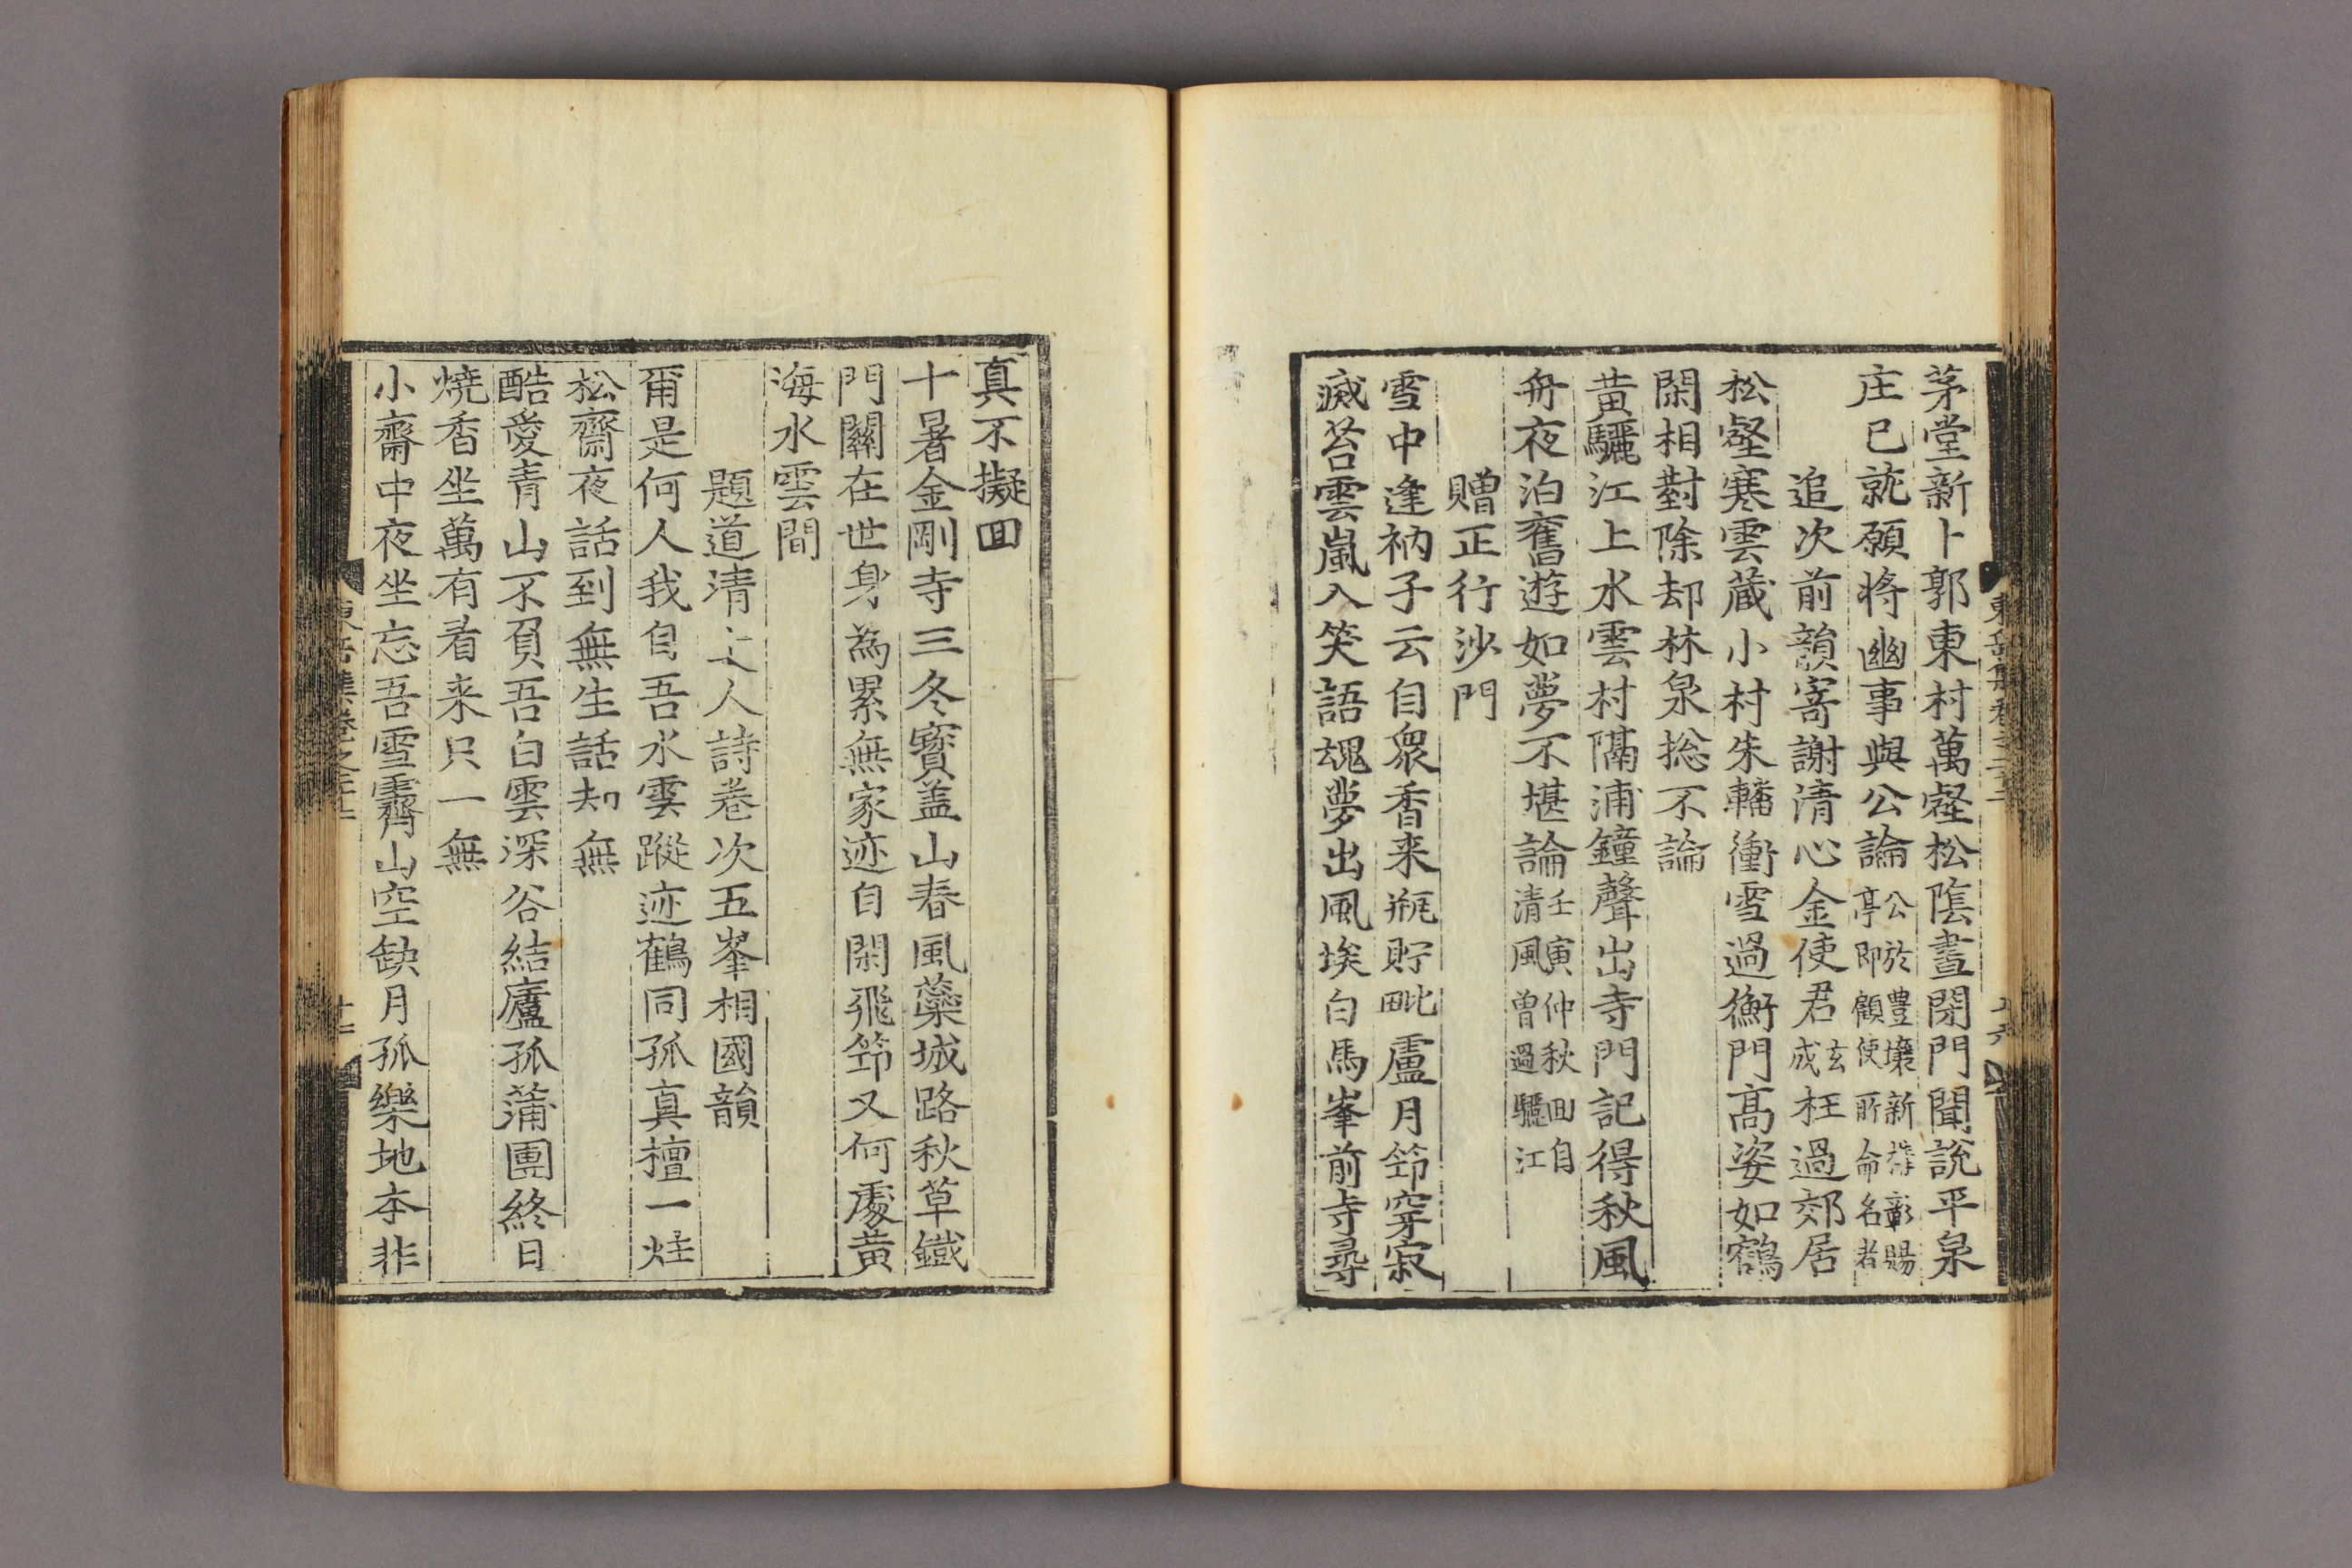 茅堂新卜郭東村萬壑松陰晝閉門聞說平泉
庄已就願將幽事與公論公於豊壤新搆彰賜
亭即顧使所命名者
追次前韻寄謝淸心金使君玄
成枉過郊居
松壑寒雲藏小村朱轓衝雪過衡門高姿如鶴
閑相對除却林泉捴不論
黃驪江上水雲村隔浦鐘聲出寺門記得秋風
舟夜泊舊遊如夢不堪論壬寅仲秋回自
清風曾過驪江
贈正行沙門
雪中逢衲子云自衆香来瓶貯毗盧月笻穿寂
滅苔雲嵐入笑語魂夢出風埃白馬峯前寺尋
真不擬回
十暑金剛寺三冬寶盖山春風蘂城路秋草鐵
門關在世身為累無家迹自閑飛笻又何處黃
海水雲間
題道清上人詩卷次五峯相國韻
甭是何人我自吾水雲蹤迹鶴同孤真檀一炷
松齋夜話到無生話却無
酷愛青山不負吾白雲深谷結廬孤蒲團終日
燒香坐萬有看来只一無
小齋中夜坐忘吾雪霽山空缺月孤樂地本非